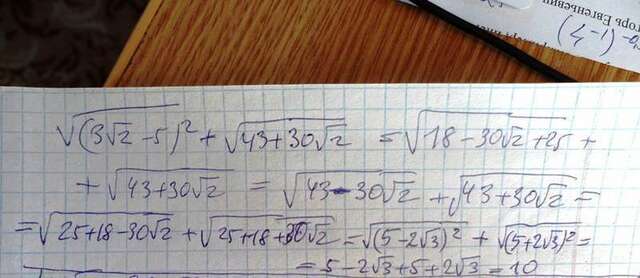 горь Евгеньевич
(1-7)
√(3√2 -5)² + √43+30√2 = √18-30√2+25 +
+ √43+30√2 = √43-30√2 + √43+30√2 =
= √25+18-30√2 + √25+18+30√2 = √(5-2√3)² + √(5+2√3)² =
= 5-2√3+5+2√3 = 10